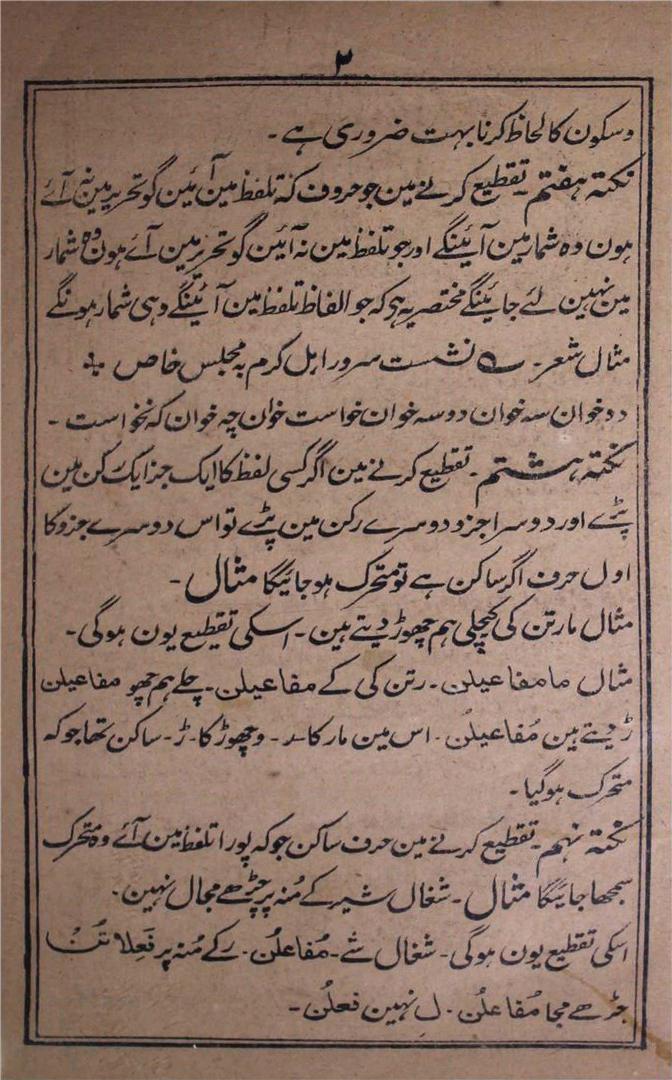 ۳
و سکون کا لحاظ کرنا بہت ضروری ہے ۔
نکتہ ہفتم ۔ تقطیع کرنے مین جو حروف کہ تلفظ مین آئین گو تحریر مین نہ آئے
ہون وہ شمار مین آئینگے اور جو تلفظ مین نہ آئین گو تحریر مین آئے ہون وہ شمار
مین نہین لئے جائینگے مختصر یہ ہی کہ جو الفاظ تلفظ مین آئینگے وہی شمار ہونگے
مثال شعر ۔ ؎ نشست سرور اہل کرم بہ مجلس خاص ؞
دو خوان سہ خوان دو سہ خوان خواست خوان چہ خوان کہ نخواست ۔
نکتہ ہشتم ۔ تقطیع کرنے مین اگر کسی لفظ کا ایک جز ایک رکن مین
پڑے اور دوسرا جزو دوسرے رکن مین پڑے تو اس دوسرے جزو کا
اول حرف اگر ساکن ہے تو متحرک ہو جائیگا مثال ۔
مثال مار تن کی کیچلی ہم چھوڑ دیتے ہین ۔ اسکی تقطیع یون ہوگی ۔
مثال ما مفاعیلن ۔ رتن کی کے مفاعیلن ۔ چلے ہم چھو مفاعیلن
ڑ دیتے ہین مُفاعیلُن ۔ اس مین مار کا ۔ ر ۔ و چھوڑ کا ۔ ڑ ۔ ساکن تھا جو کہ
متحرک ہو گیا ۔
نکتہ نہم ۔ تقطیع کرنے مین حرف ساکن جو کہ پورا تلفظ مین آئے وہ متحرک
سمجھا جائیگا مثال ۔ شغال شیر کے مُنہ پر چڑھے مجال نہین ۔
اسکی تقطیع یون ہوگی ۔ شغال شے ۔ مُفاعلُن ۔ رکے مُنہ پر فَعِلاتُن
چڑھے مجا مُفاعلُن ۔ لِ نہین فعلُن ۔